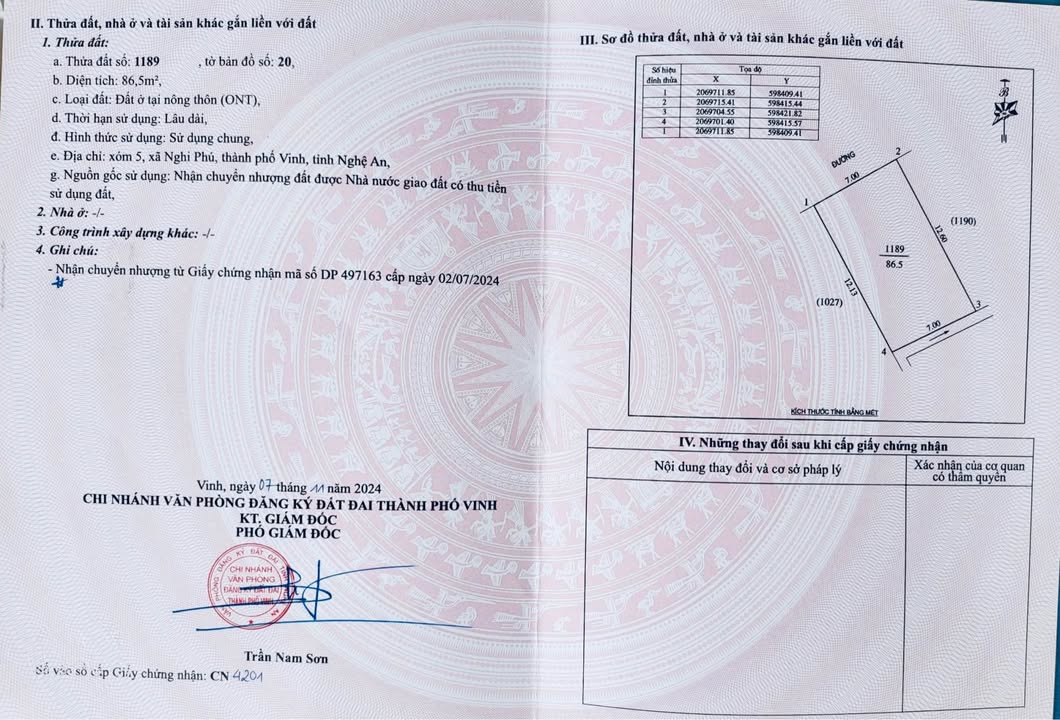 II. Thửa đất, nhà ở và tài sản khác gắn liền với đất
1. Thửa đất:
a. Thửa đất số: 1189 , tờ bản đồ số: 20,
b. Diện tích: 86,5m²,
c. Loại đất: Đất ở tại nông thôn (ONT),
d. Thời hạn sử dụng: Lâu dài,
đ. Hình thức sử dụng: Sử dụng chung,
e. Địa chỉ: xóm 5, xã Nghi Phú, thành phố Vinh, tỉnh Nghệ An,
g. Nguồn gốc sử dụng: Nhận chuyển nhượng đất được Nhà nước giao đất có thu tiền
sử dụng đất,
2. Nhà ở: -/-
3. Công trình xây dựng khác: -/-
4. Ghi chú:
- Nhận chuyển nhượng từ Giấy chứng nhận mã số DP 497163 cấp ngày 02/07/2024
Vinh, ngày 07 tháng 11 năm 2024
CHI NHÁNH VĂN PHÒNG ĐĂNG KÝ ĐẤT ĐAI THÀNH PHỐ VINH
KT. GIÁM ĐỐC
PHÓ GIÁM ĐỐC
CHI NHÁNH
VĂN PHÒNG
ĐĂNG KÝ ĐẤT ĐAI
THÀNH PHỐ VINH
Trần Nam Sơn
Số vào sổ cấp Giấy chứng nhận: CN 4201
III. Sơ đồ thửa đất, nhà ở và tài sản khác gắn liền với đất
Số hiệu đỉnh thửa Tọa độ
X Y
1 2069711.85 598409.41
2 2069715.41 598415.44
3 2069704.55 598421.82
4 2069701.40 598415.57
1 2069711.85 598409.41
B
ĐƯỜNG
7.00
1
2
(1190)
12.60
1189
86.5
12.13
(1027)
3
7.00
4
KÍCH THƯỚC TÍNH BẰNG MÉT
IV. Những thay đổi sau khi cấp giấy chứng nhận
Nội dung thay đổi và cơ sở pháp lý
Xác nhận của cơ quan
có thẩm quyền